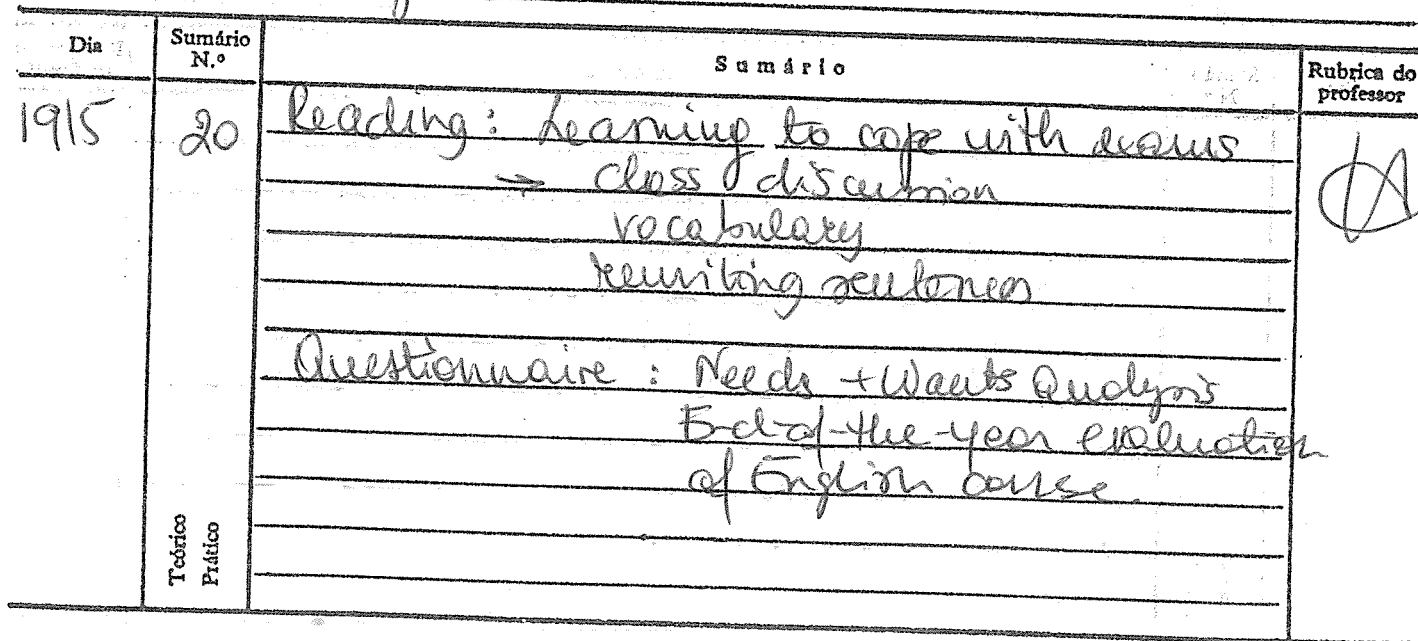 Dia
Sumário N.º
Sumário
Rubrica do professor
19/5
20
Reading: Learning to cope with exams
→ class discussion
vocabulary
rewriting sentences
Questionnaire: Needs + Wants Analysis
End-of-the-year evaluation
of English course.
Teórico
Prático